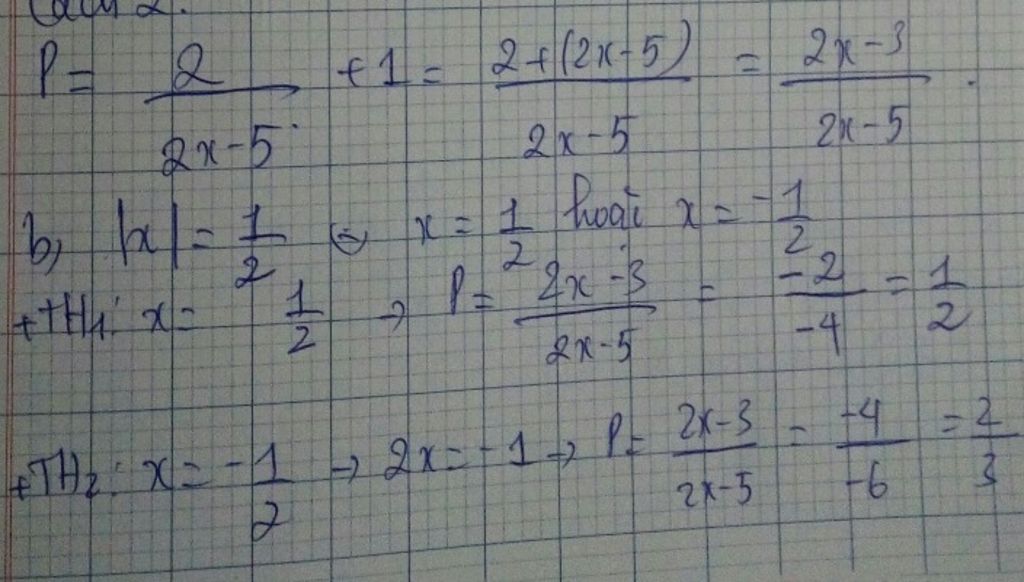 Cách 2:
P = 2/(2x-5) + 1 = (2+(2x-5))/(2x-5) = (2x-3)/(2x-5).
b, |x| = 1/2 ⇔ x = 1/2 hoặc x = -1/2
+TH1: x = 1/2 → P = (2x-3)/(2x-5) = -2/-4 = 1/2
+TH2: x = -1/2 → 2x = -1 → P = (2x-3)/(2x-5) = -4/-6 = 2/3